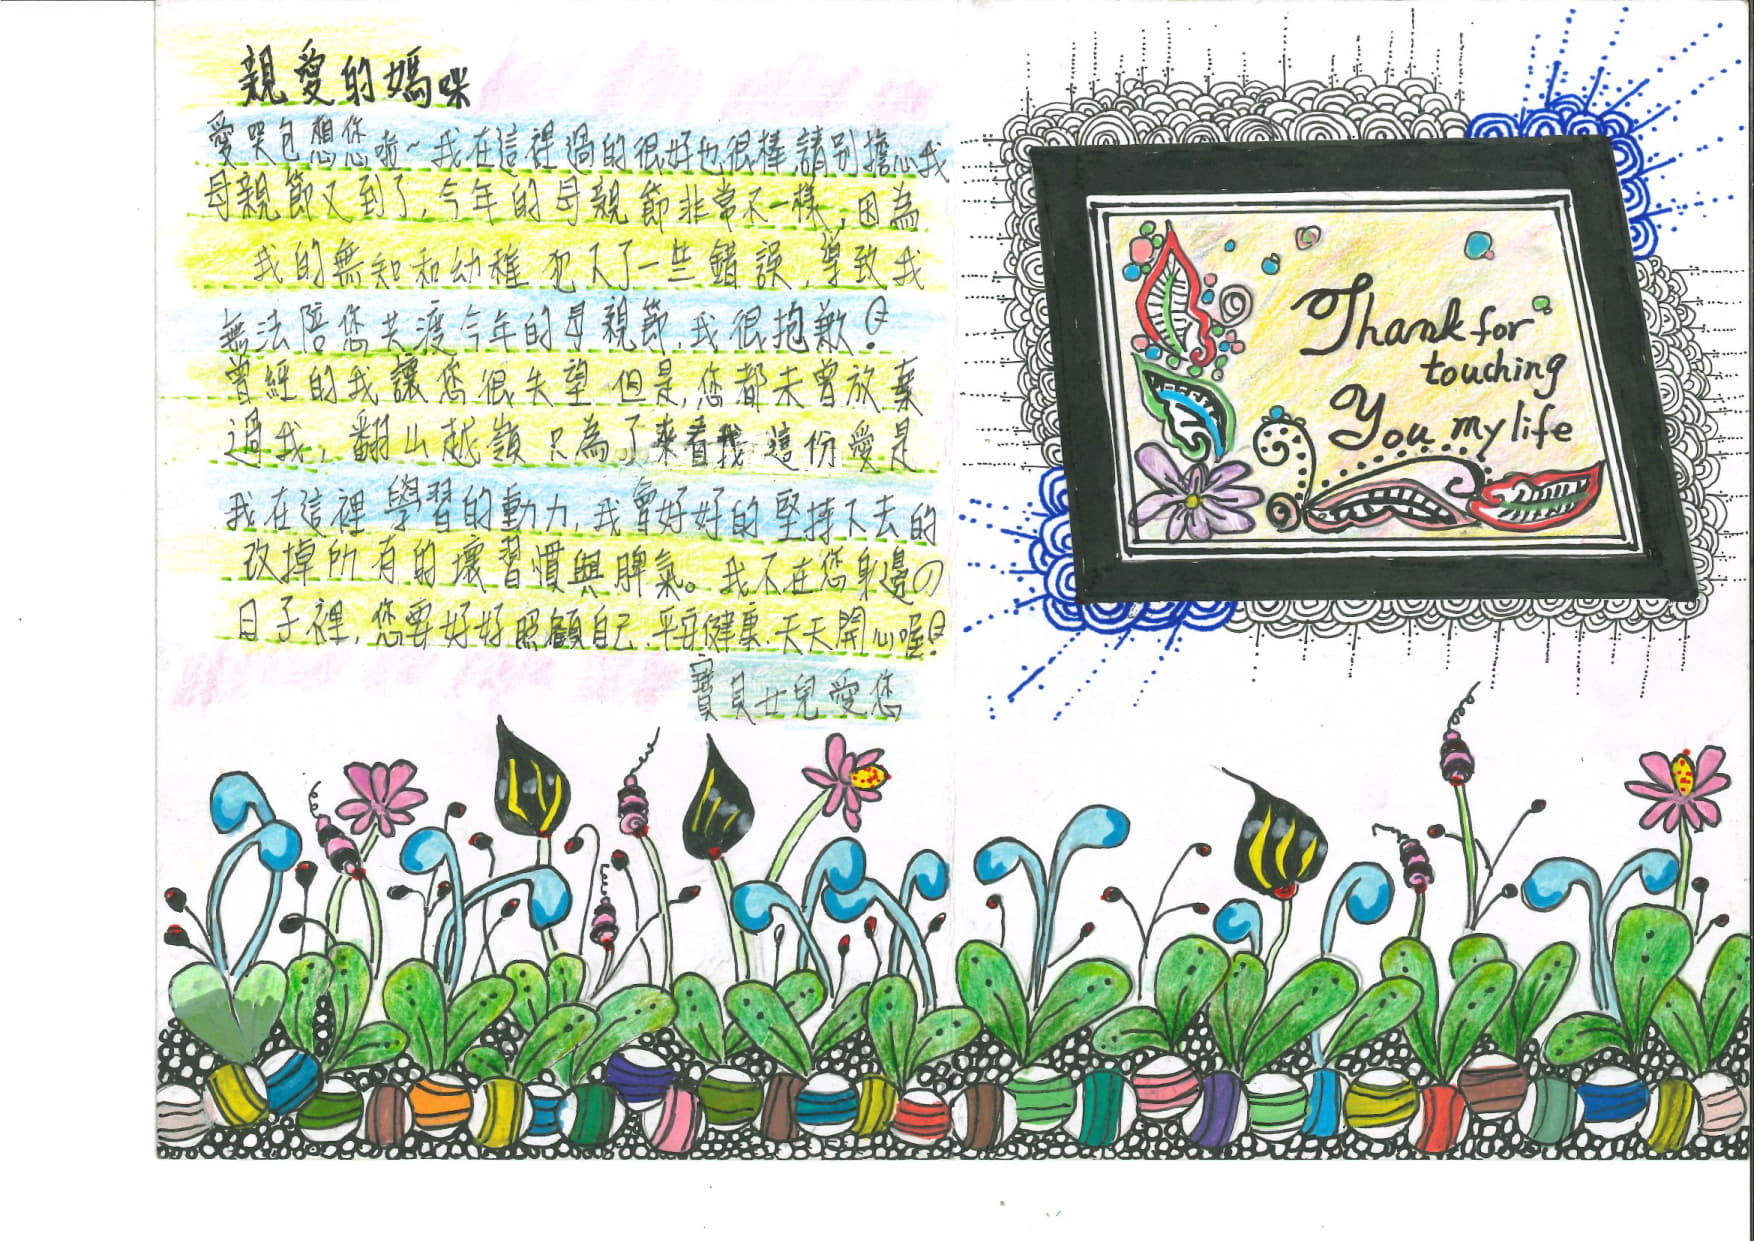 親愛的媽咪
愛哭包想您啦~我在這裡過的很好也很棒,請別擔心我
母親節又到了,今年的母親節非常不一樣,因為
我的無知和幼稚犯下了一些錯誤,導致我
無法陪您共渡今年的母親節,我很抱歉!
曾經的我讓您很失望,但是,您都未曾放棄
過我,翻山越嶺只為了來看我這份愛是
我在這裡學習的動力,我會好好的堅持下去的
改掉所有的壞習慣與脾氣。我不在您身邊の
日子裡,您要好好照顧自己,平安健康,天天開心喔!
寶貝女兒愛您
Thank for
touching
You my life